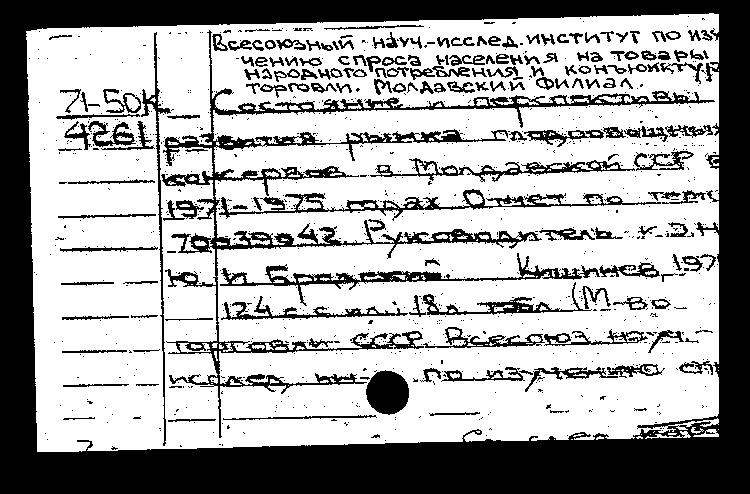 Всесоюзный науч.-исслед. институт по изу
чению спроса населения на товары
народного потребления и конъюнктур
торговли. Молдавский филиал.
71-50К Состояние и перспективы
4261 развития рынка плодоовощных
консервов в Молдавской ССР в
1971-1975 годах Отчет по теме
70039042. Руководитель к.э.н
Ю. И Бродский. Кишинев, 197
124 с. с ил.; 18 л табл. (М-во
торговли СССР. Всесоюз науч.-
исслед. ин- по изучению сп
См след карт